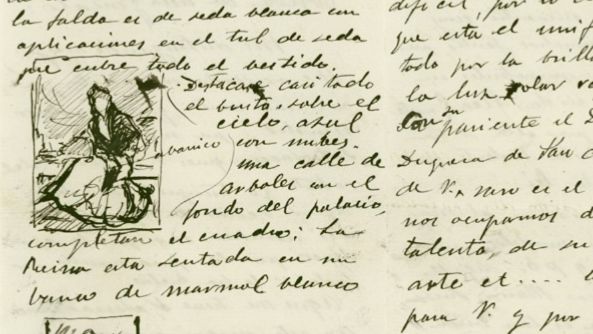 la falda es de seda blanca con
aplicaciones en el tul de seda
que cubre todo el vestido.
Destacase casi todo
el busto, sobre el
cielo, azul
abanico
con nubes.
una calle de
arboles con el
fondo del palacio,
completan el cuadro; La
Reina esta sentada en un
banco de marmol blanco
dificil, por
que esta el unif
todo por la brilla
la luz solar
Con su pariente el
Duquesa de San
de V. caro es el
nos ocupamos d
talento, de su
arte et....
para V. y por